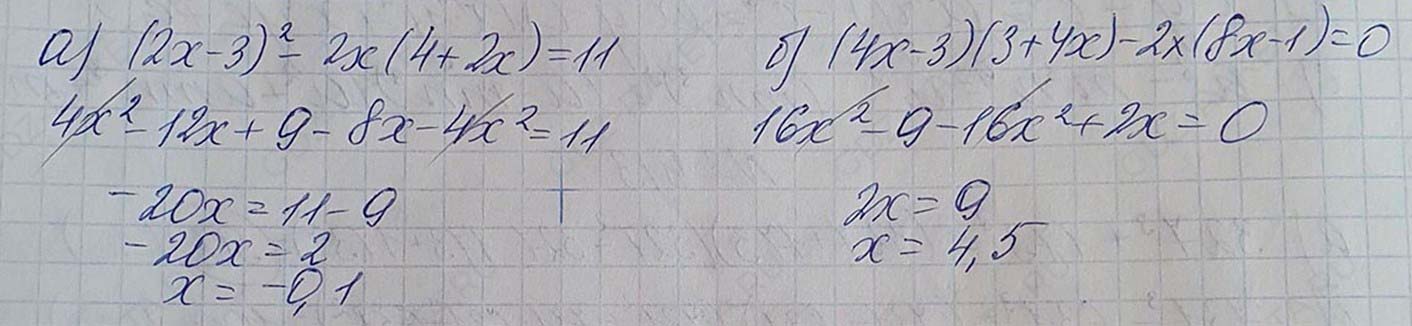 а) (2x-3)²- 2x(4+2x)=11
4x²-12x+9-8x-4x²=11
-20x=11-9
-20x=2
x=-0,1
б) (4x-3)(3+4x)-2x(8x-1)=0
16x²-9-16x²+2x=0
2x=9
x=4,5